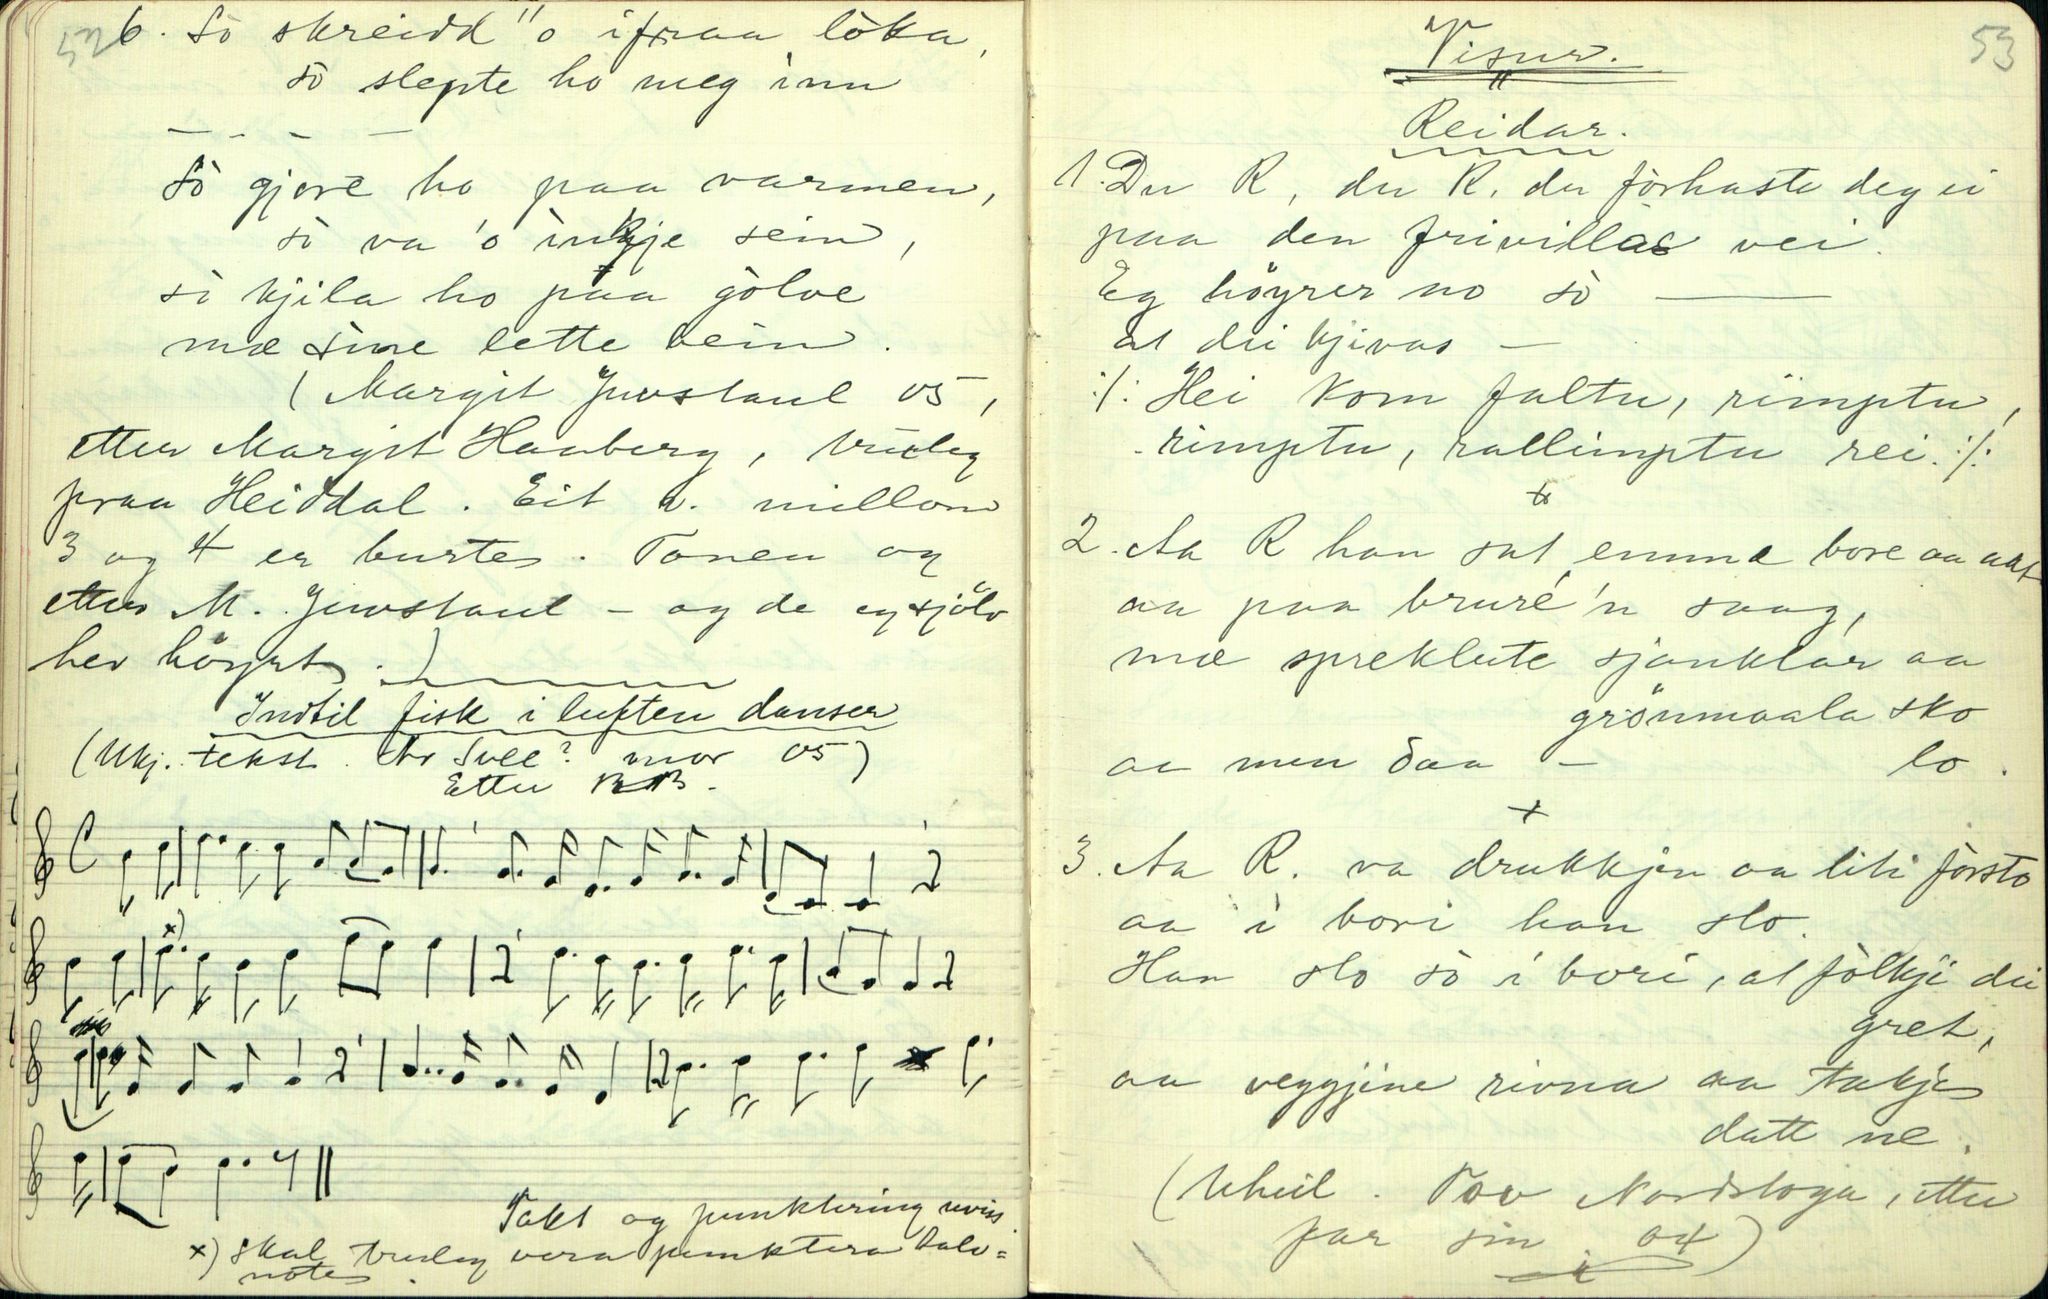 52
6. Sò skreidd "o ifraa lòka,
sò slepte ho meg inn
— - - —
Sò gjore ho paa varmen,
sò va 'o inkje sein,
sò kjila ho paa gòlve
mæ sine lette bein.
(Margit Juvstaul 05,
etter Margit Hanberg, truleg
fraa Heiddal. Eit v. millom
3 og 4 er burte. Tonen og
etter M. Juvstaul - og de eg sjölv
hev höyrt.)
Indtil fisk i luften danser
(Ukj. tekst. mor 05)
Etter
x)
Takt og punktering uviss.
x) skal truleg vera punktera halv=
note.
53
Visur.
Reidar.
1. Du R, du R. du fòrhaste deg ei
paa den frivillas vei.
Eg höyrer no sò —
at dei kjivas —
:/: Hei kom faltu, rimptu,
rimptu, rallimptu rei. :/:
+
2. Aa R han sat emmæ bore aa aat
aa paa brure'n saag,
mæ spreklute sjanklar aa
grönmaala sko
aa men daa — lo.
+
3. Aa R. va drukkjen aa liti fòrsto
aa i bori han slo.
Han slo sò i bori, at fòlkji dei
gret,
aa veggjine rivna aa takje
datt ne.
(Uheil. Tov Nordstoga, etter
far sin. 04)